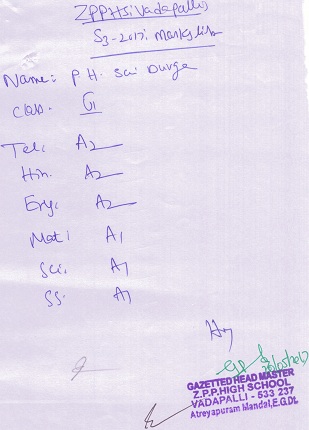 ZPPHS; Vadapalli
S3-2017; Marks list
Name: P H. Sai Durga
Class.
Tel: A2
Hin. A2
Eng: A2
Mat: A1
Sci. A1
SS. A1
GAZETTED HEAD MASTER
Z.P.P.HIGH SCHOOL
VADAPALLI - 533 237
Atreyapuram Mandal, E.G.Dt.